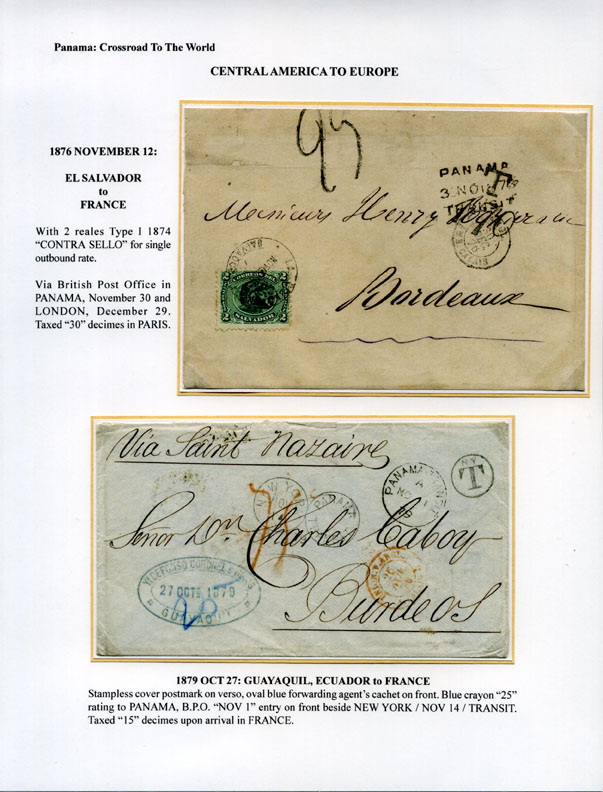 Panama: Crossroad To The World
CENTRAL AMERICA TO EUROPE
1876 NOVEMBER 12:
EL SALVADOR
to
FRANCE
With 2 reales Type I 1874
“CONTRA SELLO” for single
outbound rate.
Via British Post Office in
PANAMA, November 30 and
LONDON, December 29.
Taxed “30” decimes in PARIS.
PANAMA
TRANSIT
Messieurs Henry
Bordeaux
2 2
SALVADOR
Via Saint Nazaire
NEW YORK
PANAMA
PANAMA
A
N.Y.
T
Señor Dn Charles Caboy
Burdeos
27 OCTE 1879
GUAYAQUIL
1879 OCT 27: GUAYAQUIL, ECUADOR to FRANCE
Stampless cover postmark on verso, oval blue forwarding agent’s cachet on front. Blue crayon “25”
rating to PANAMA, B.P.O. “NOV 1” entry on front beside NEW YORK / NOV 14 / TRANSIT.
Taxed “15” decimes upon arrival in FRANCE.